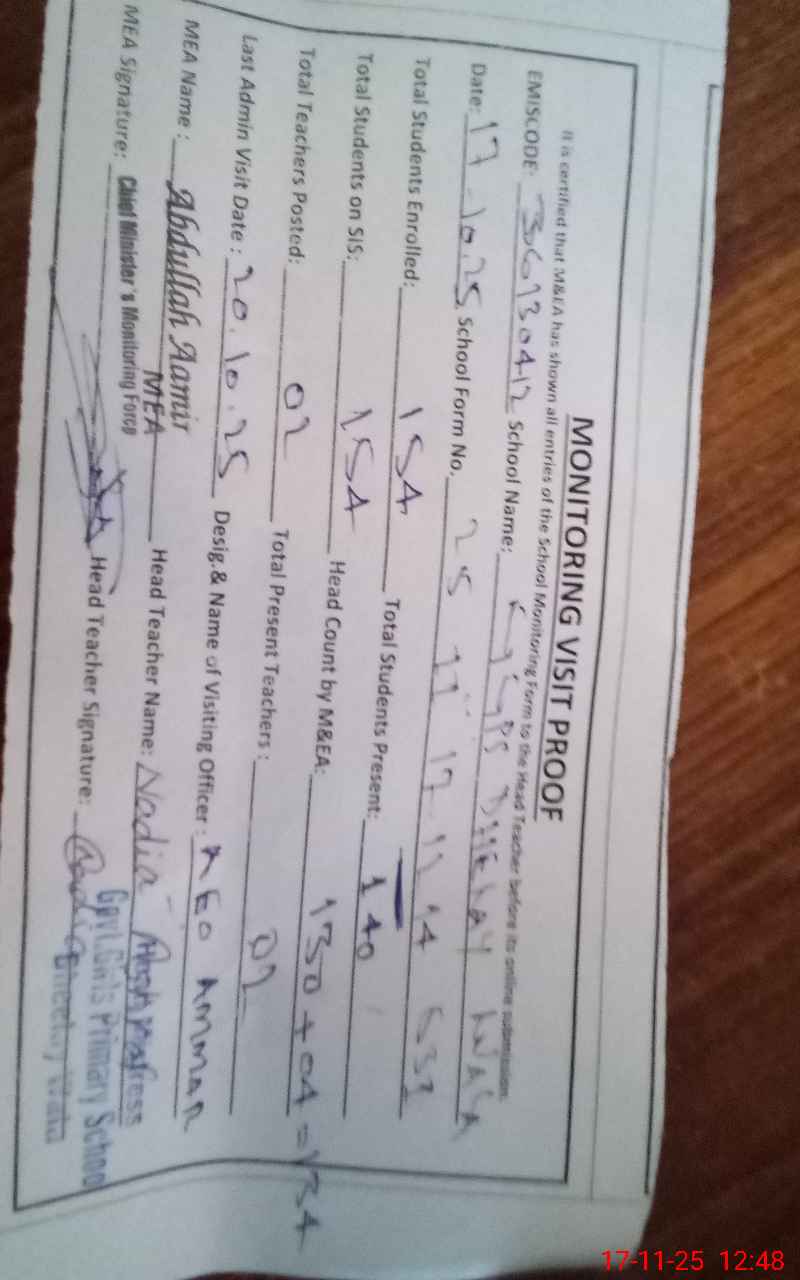 MONITORING VISIT PROOF
It is certified that M&EA has shown all entries of the School Monitoring Form to the Head Teacher before its online submission.
EMISCODE: School Name: GGPS
Date: 17-10.25 School Form No. 25 11 17
Total Students Enrolled: 154 Total Students Present: 140
Total Students on SIS: 154 Head Count by M&EA: 130+04=134
Total Teachers Posted: 02 Total Present Teachers: 02
Last Admin Visit Date: 20.10.25 Desig.& Name of Visiting Officer: AEO AMMAR
MEA Name: Abdullah Aamir Head Teacher Name: Nadia
MEA
MEA Signature: Chief Minister's Monitoring Force Head Teacher Signature:
Headmistress
Govt. Girls Primary School
17-11-25 12:48